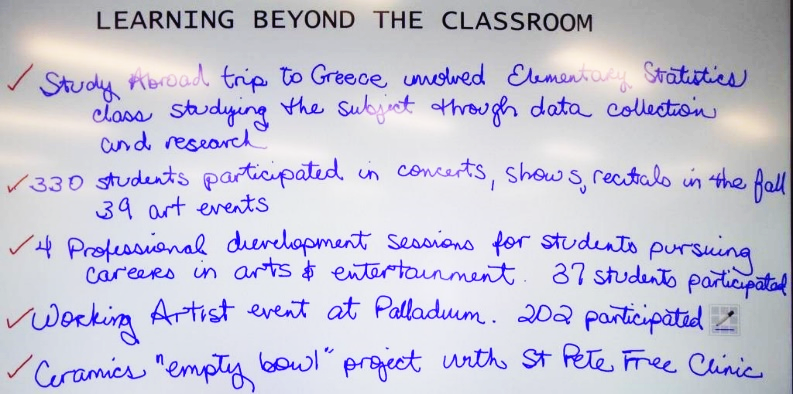 LEARNING BEYOND THE CLASSROOM
✓ Study Abroad trip to Greece involved Elementary Statistics
class studying the subject through data collection
and research
✓ 330 students participated in concerts, shows, recitals in the fall
39 art events
✓ 4 Professional development sessions for students pursuing
careers in arts & entertainment. 37 students participated
✓ Working Artist event at Palladium. 202 participated
✓ Ceramics "empty bowl" project with St Pete Free Clinic